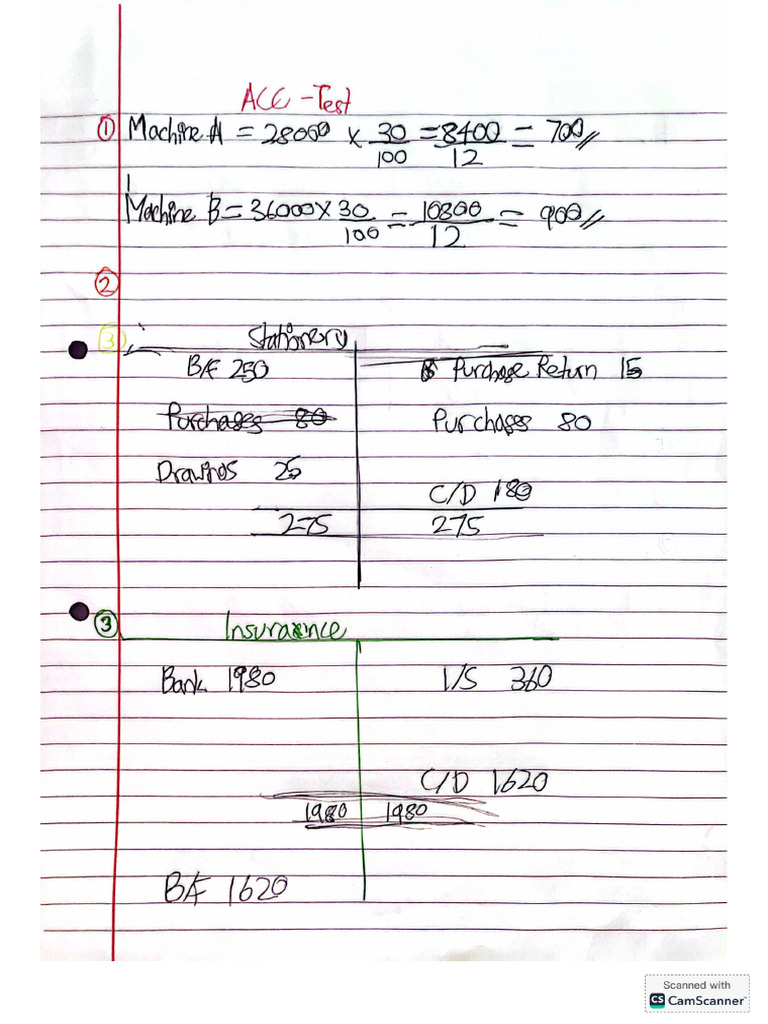 ACC - Test
① Machine A = 28000 × 30/100 = 8400/12 = 700//
Machine B = 36000 × 30/100 = 10800/12 = 900//
②
③ Stationery
B/F 250 Purchase Return 15
Purchases 80 Purchases 80
Drawings 25
C/D 180
275 275
③ Insurance
Bank 1980 I/S 360
C/D 1620
1980 1980
B/F 1620
Scanned with
CS CamScanner